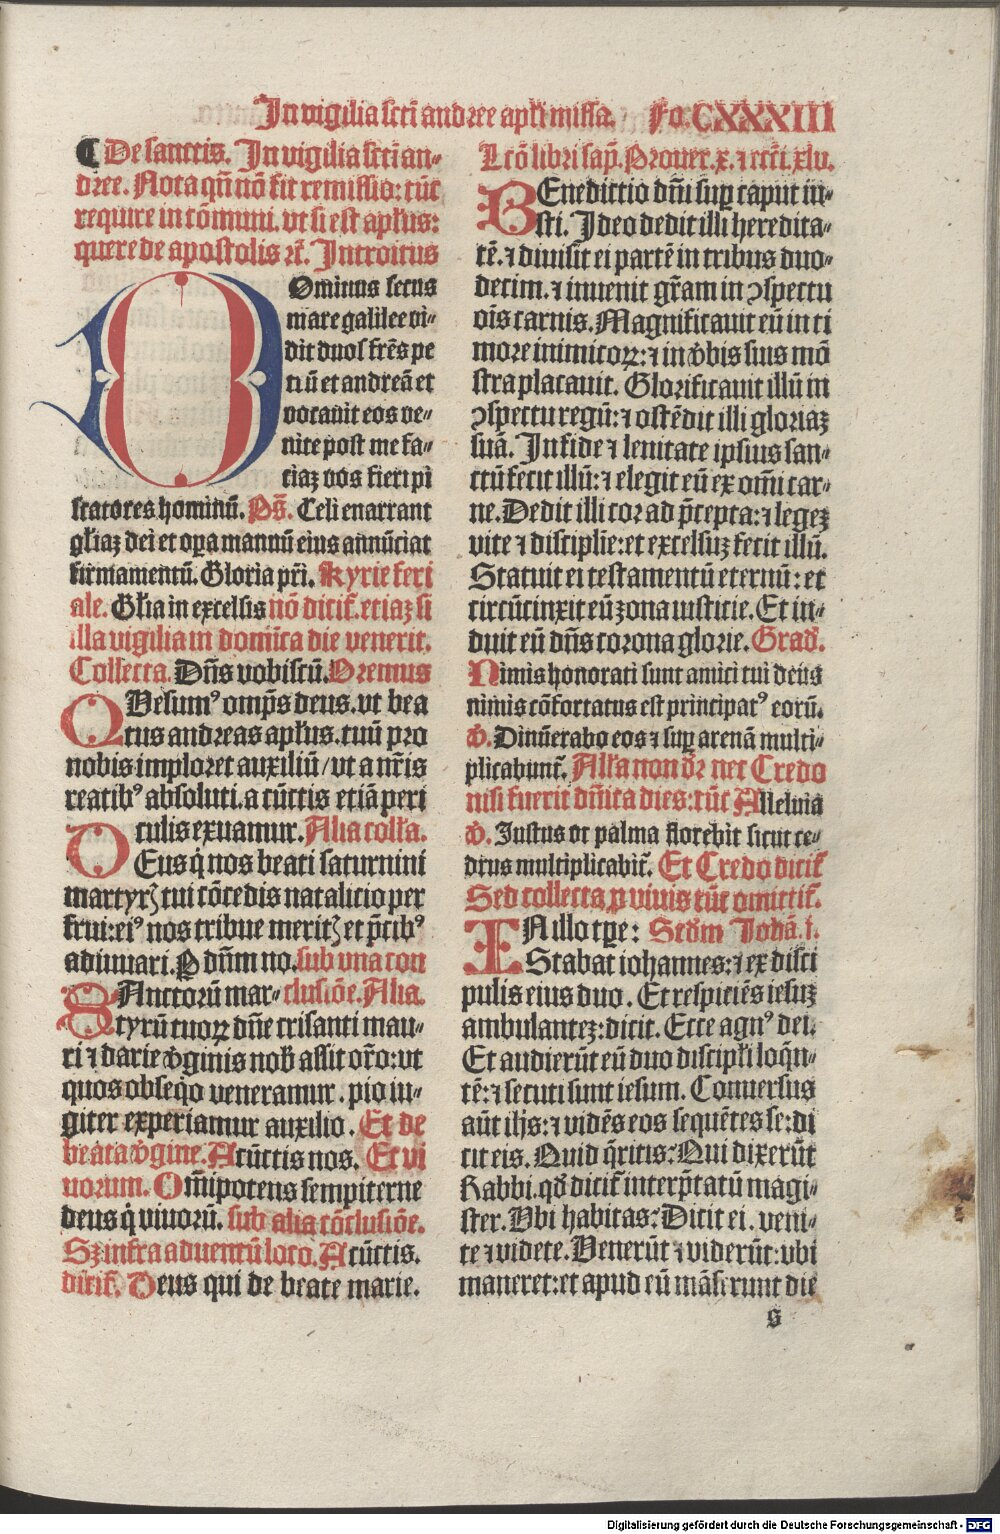 In vigilia scti andree apłi missa. Fo. CXXXIII
De sanctis. In vigilia scti an-
dree. Nota qñ nō fit remissio: tūc
require in cōmuni. vt si est apłus:
quere de apostolis ⁊c̄. Introitus
DOminus secus
mare galilee vi-
dit duos frēs pe
trū et andreā et
vocauit eos ve-
nite post me fa-
ciaꝫ vos fieri pi
scatores hominū. Ps̄. Celi enarrant
głiaꝫ dei et oꝑa manuū eius annūciat
firmamentū. Gloria pr̄i. Kyrie feri
ale. Głia in excelsis nō dicit̄. etiaꝫ si
illa vigilia in dominica die venerit.
Collecta. Dn̄s vobiscū. Oremus
QVesumꝰ omp̄s deus. vt bea
tus andreas apłus. tuū pro
nobis imploret auxiliū / vt a nr̄is
reatibꝰ absoluti. a cūctis etiā peri
culis exuamur. Alia colła.
DEus q̇ nos beati saturnini
martyrꝭ tui cōcedis natalicio per
frui: eiꝰ nos tribue meritꝭ et p̄cibꝰ
adiuuari. P dn̄m no. sub vna con
SAnctorū mar- clusiōe. Alia.
tyrū tuoꝝ dn̄e crisanti mau-
ri ⁊ darie v̄ginis nob̄ assit or̄o: vt
quos obseq̇o veneramur. pio iu-
giter experiamur auxilio. Et de
beata v̄gine. A cūctis nos. Et vi
uorum. Om̄ipotens sempiterne
deus q̇ viuorū. sub alia cōclusiōe.
Sꝫ infra aduentū loco. A cūctis.
dicit̄. Deus qui de beate marie.
Lcō libri sap̄. Prouer. x. ⁊ eccī. xlv.
BEnedictio dn̄i suꝑ caput iu-
sti. Ideo dedit illi heredita-
tē. ⁊ diuisit ei partē in tribus duo-
decim. ⁊ inuenit gr̄am in ꝯspectu
oīs carnis. Magnificauit eū in ti
more inimicoꝝ: ⁊ in v̄bis suis mō
stra placauit. Glorificauit illū in
ꝯspectu regū: ⁊ ostēdit illi gloriaꝫ
suā. In fide ⁊ lenitate ipsius san-
ctū fecit illū: ⁊ elegit eū ex om̄i car-
ne. Dedit illi cor ad p̄cepta: ⁊ legeꝫ
vite ⁊ disciplie: et excelsuꝫ fecit illū.
Statuit ei testamentū eternū: et
circūcinxit eū zona iusticie. Et in-
duit eū dn̄s corona glorie. Grad̄.
Nimis honorati sunt amici tui deus
nimis cōfortatus est principatꝰ eorū.
℣. Dinūerabo eos ⁊ suꝑ arenā multi-
plicabunt̄. Ałła non dr̄ nec Credo
nisi fuerit dn̄ica dies: tūc Alleluia
℣. Iustus vt palma florebit sicut ce-
drus multiplicabit̄. Et Credo dicit̄
Sed collecta ꝓ viuis tūc omittit̄.
IN illo tꝑe: Scd̄m Johā. i.
Stabat iohannes: ⁊ ex disci
pulis eius duo. Et respiciēs iesuꝫ
ambulanteꝫ: dicit. Ecce agnꝰ dei.
Et audierūt eū duo discipłi loq̄n-
tē: ⁊ secuti sunt iesum. Conuersus
aūt ih̄s: ⁊ vidēs eos sequētes se: di
cit eis. Quid q̄ritis? Qui dixerūt
Rabbi. qd̄ dicit̄ interp̄tatū magi-
ster. Vbi habitas? Dicit ei. veni-
te ⁊ videte. Venerūt ⁊ viderūt: vbi
maneret: et apud eū māserunt die
s
Digitalisierung gefördert durch die Deutsche Forschungsgemeinschaft - DFG